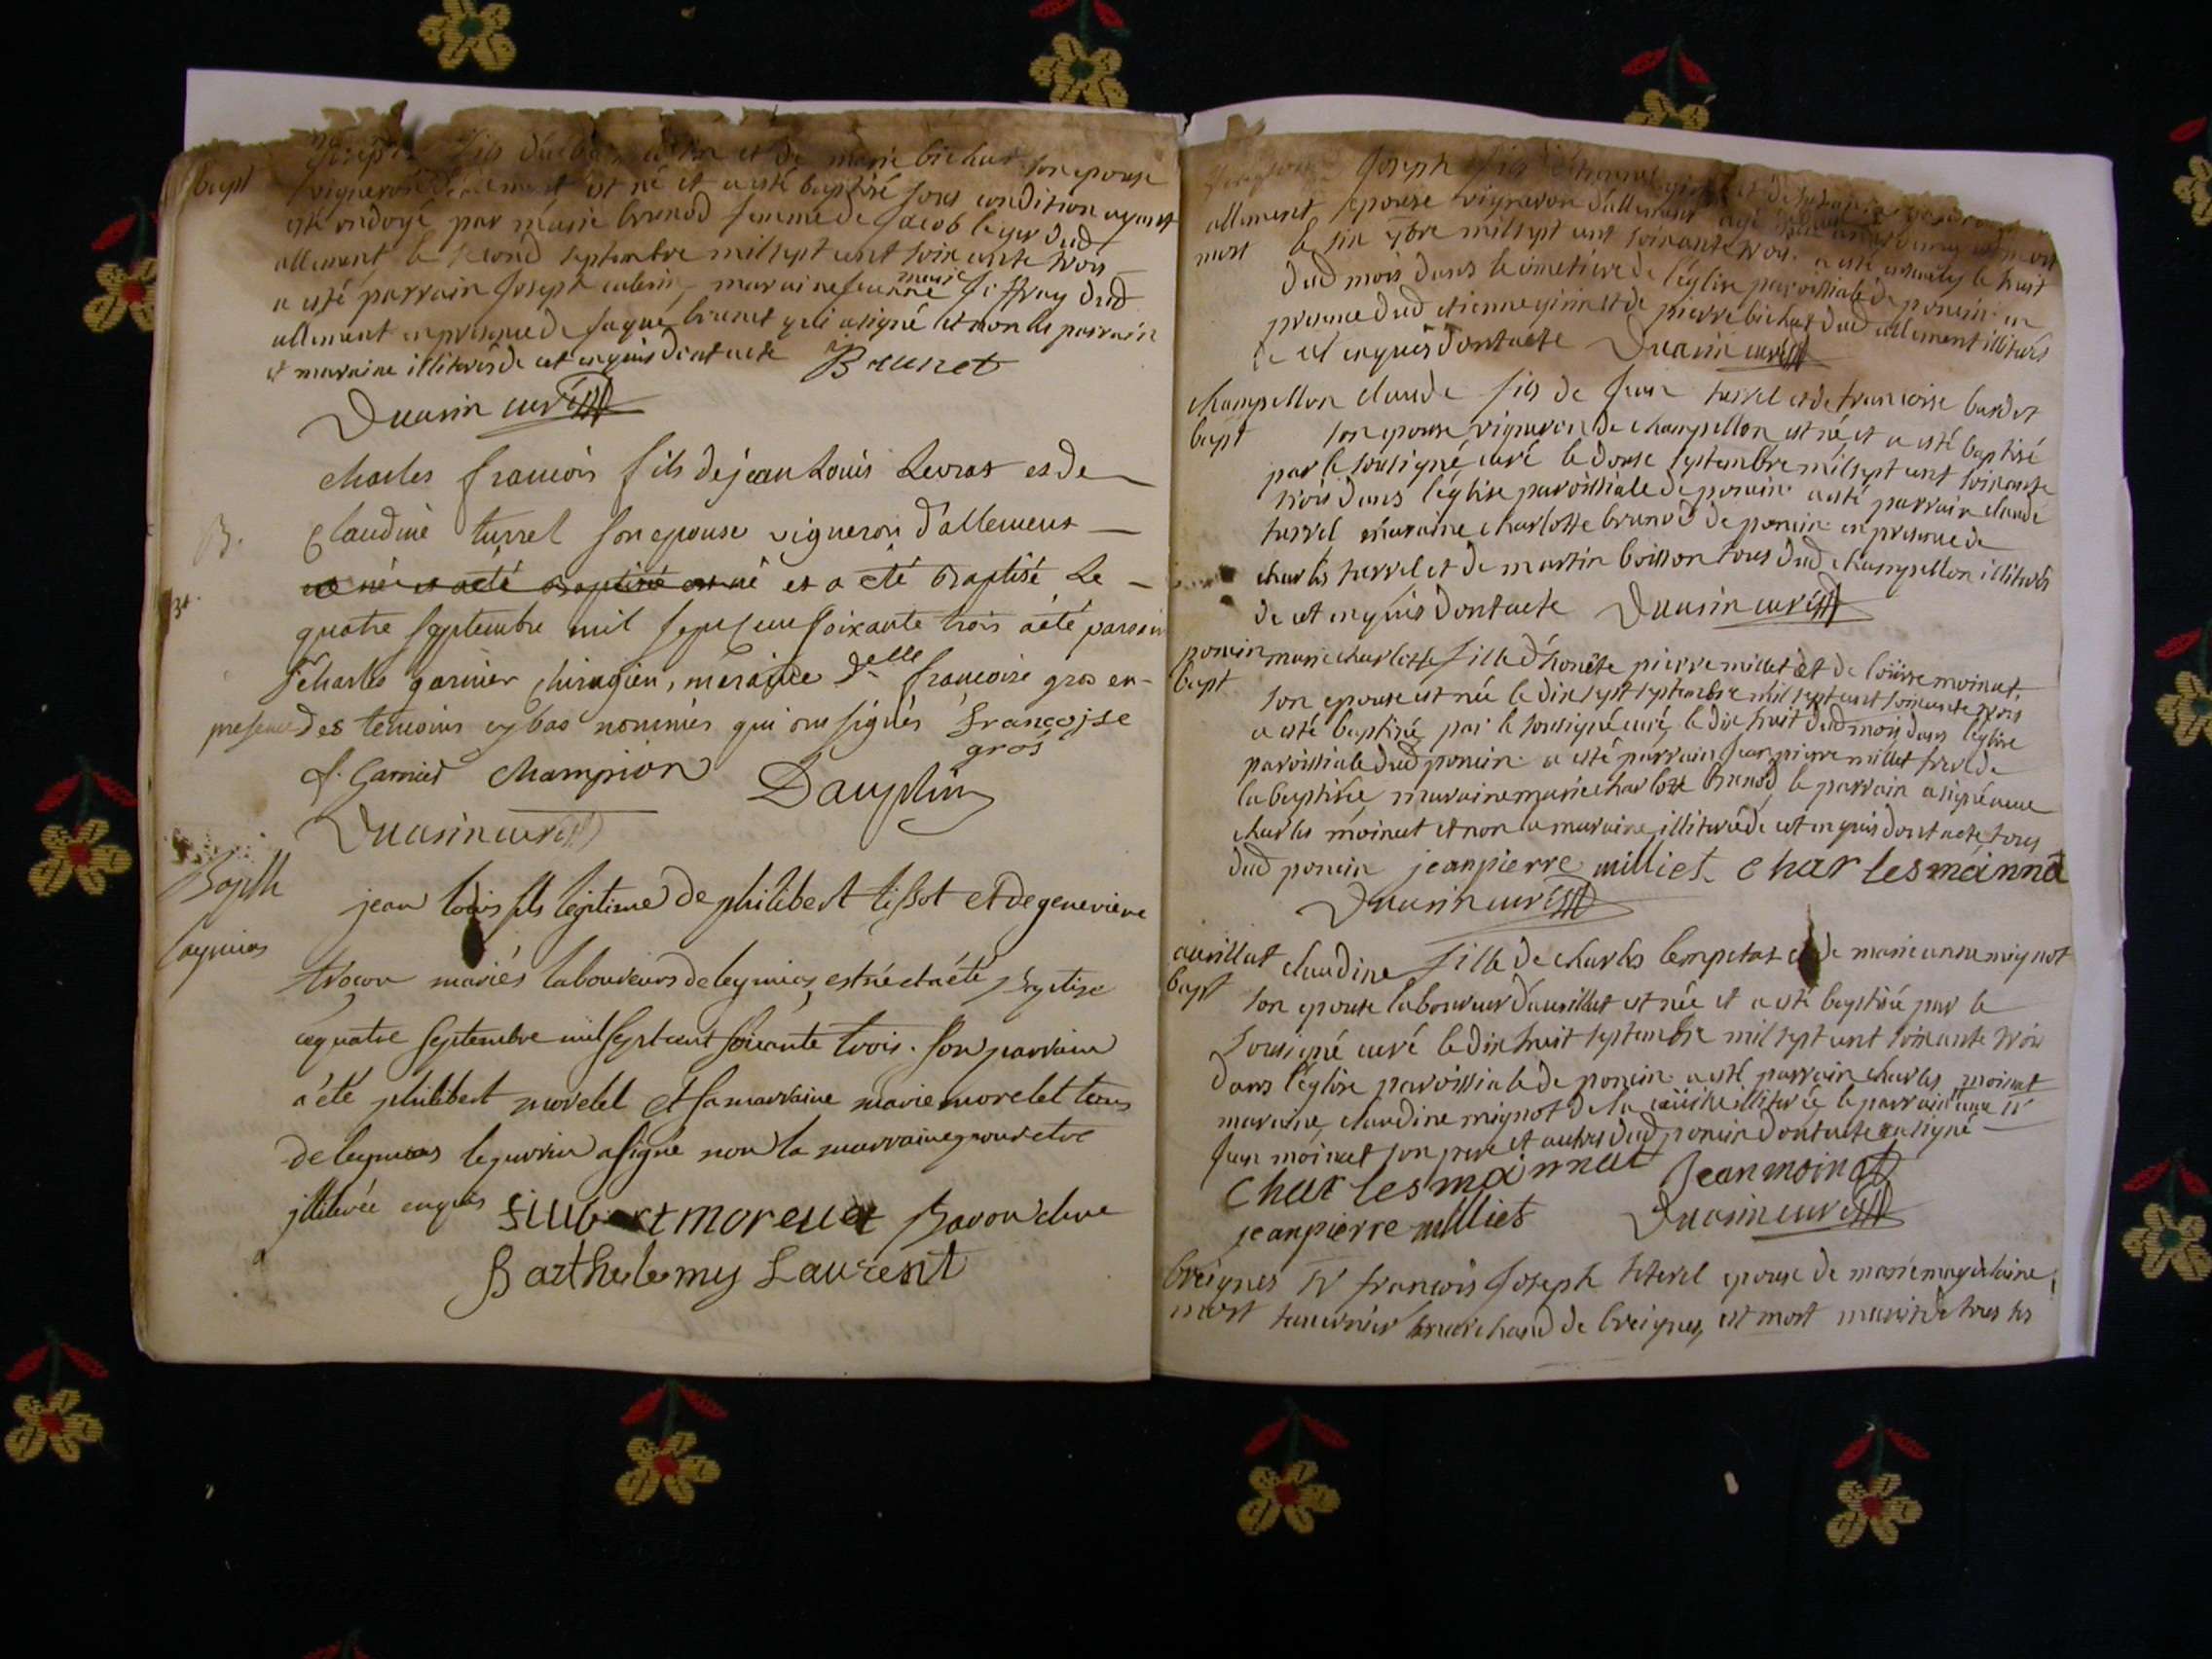 bapt
Joseph fils de et de marie bichat son epouse
vigneron est né et a esté baptisé sous condition ayant
esté ondoyé par marie brunod femme de Jacob leger dud
allement le second septembre mil sept cent soixante trois
a esté parrain Joseph maraine jeanne marie dud
allement en presence de Jaque brunet qui a signé et non les parrain
et maraine illiterés de cet enquis dont acte Brunet
Duarin curé
B.
charles francois fils de jean Louis Levrat et de
Claudine turrel son epouse vigneron d'allement
est né et a été baptisé est né et a été Baptisé Le
quatre septembre mil sept cent soixante trois a été parrain
sr charles garnier chirugien, meraine delle francoise gros en
presence des temoins cy bas nommés qui ont signés françoise
gros
f. Garnier Champion Dauphin
Duarin curé
Baptt
Leymias
jean louis fils legitime de philibert tissot et de genevieve
mariés laboureurs de leymias est né et a été Baptize
ce quatre Septembre mil sept cent soixante trois. son parrain
a été philibert morelet et sa marraine marie morelet tous
de leymias le parrain a signé non la marraine pour etre
jlliterée enquis
Barthelemy Laurent
Joseph fils
allement epouse vigneron d'allement agé
mort le six 7bre mil sept cent soixante trois a esté le huit
dud mois dans le cimetiere de l'église paroissiale de poncin en
presence dud etienne girin et de pierre bichat dud allement illiterés
de cet enquis dont acte Duarin curé
champellon claude fils de Jean turrel et de francoise bardet
bapt son epouse vigneron de champellon est né et a esté baptisé
par le sousigné curé le douse septembre mil sept cent soixante
trois dans l'église paroissiale de poncin a esté parrain claude
turrel maraine charlotte brunod de poncin en presence de
charles turrel et de martin boisson tous dud champellon illiterés
de cet enquis dont acte Duarin curé
poncin marie charlotte fille d'honête pierre millet et de loüise moinat
bapt son epouse est née le dix sept septembre mil sept cent soixante trois
a esté baptisée par le sousigné curé le dix huit dud mois dans l'église
paroissiale dud poncin a esté parrain Jean pierre millet frere de
la baptisée, maraine marie charlote brunod, le parrain a signé avec
charles moinat et non la maraine illiterée de cet enquis dont acte, tous
dud poncin jeanpierre milliet charles moinna
Duarin curé
avrillat claudine fille de charles lempetat et de marie anne mignot
bapt son epouse laboureur d'avrillat est née et a esté baptisée par le
sousigné curé le dix huit septembre mil sept cent soixante trois
dans l'église paroissiale de poncin a esté parrain charles moinat
maraine, claudine mignot de la illiterée le parrain avec sr
Jean moinat son pere et autres dud poncin dont acte ont signé
charles moinnat Jean moinat
jeanpierre milliet Duarin curé
breignes sr françois Joseph teterel epoux de marie magdelaine
mort tavernier marchand de breignes, est mort muni de tous les